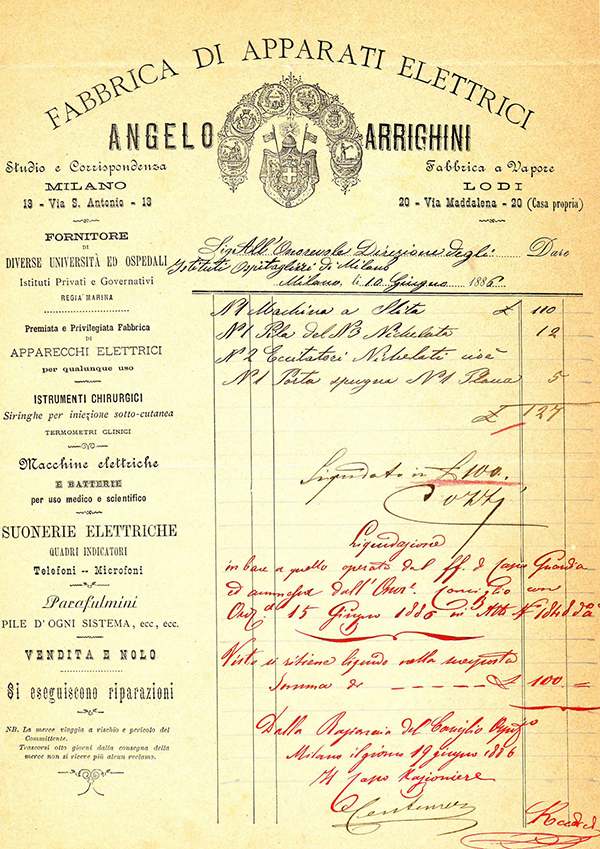 FABBRICA DI APPARATI ELETTRICI
ANGELO ARRIGHINI
Studio e Corrispondenza
MILANO
13 - Via S. Antonio - 13
Fabbrica a Vapore
LODI
20 - Via Maddalena - 20 (Casa propria)
FORNITORE
DI
DIVERSE UNIVERSITÀ ED OSPEDALI
Istituti Privati e Governativi
REGIA MARINA
Premiata e Privilegiata Fabbrica
DI
APPARECCHI ELETTRICI
per qualunque uso
ISTRUMENTI CHIRURGICI
Siringhe per iniezione sotto-cutanea
TERMOMETRI CLINICI
Macchine elettriche
E BATTERIE
per uso medico e scientifico
SUONERIE ELETTRICHE
QUADRI INDICATORI
Telefoni -- Microfoni
Parafulmini
PILE D'OGNI SISTEMA, ecc, ecc.
VENDITA E NOLO
Si eseguiscono riparazioni
NB. La merce viaggia a rischio e pericolo del
Committente.
Trascorsi otto giorni dalla consegna della
merce non si riceve più alcun reclamo.
Sig. All'Onorevole Direzione degli Dare
Istituti Ospitalieri di Milano
Milano, li 10 Giugno 1886
N° 1 Machina a Slita £ 110
N° 1 Pila del N° 3 Nichelata 12
N° 2 Eccitatori Nichelati cioè
N° 1 Porta spugna N° 1 5
£ 127
Liquidato in £ 100.
Liquidazione
in base a quello operato dal ff. di Capo Guardia
ed ammessa dall'Onor. Consiglio con
15 Giugno 1886 in Atti N°
Visto si ritiene liquido nella suesposta
Somma di - - - - - £ 100. =
Dalla Ragioneria del Consiglio
Milano il giorno 19 giugno 1886
Il Capo Ragioniere